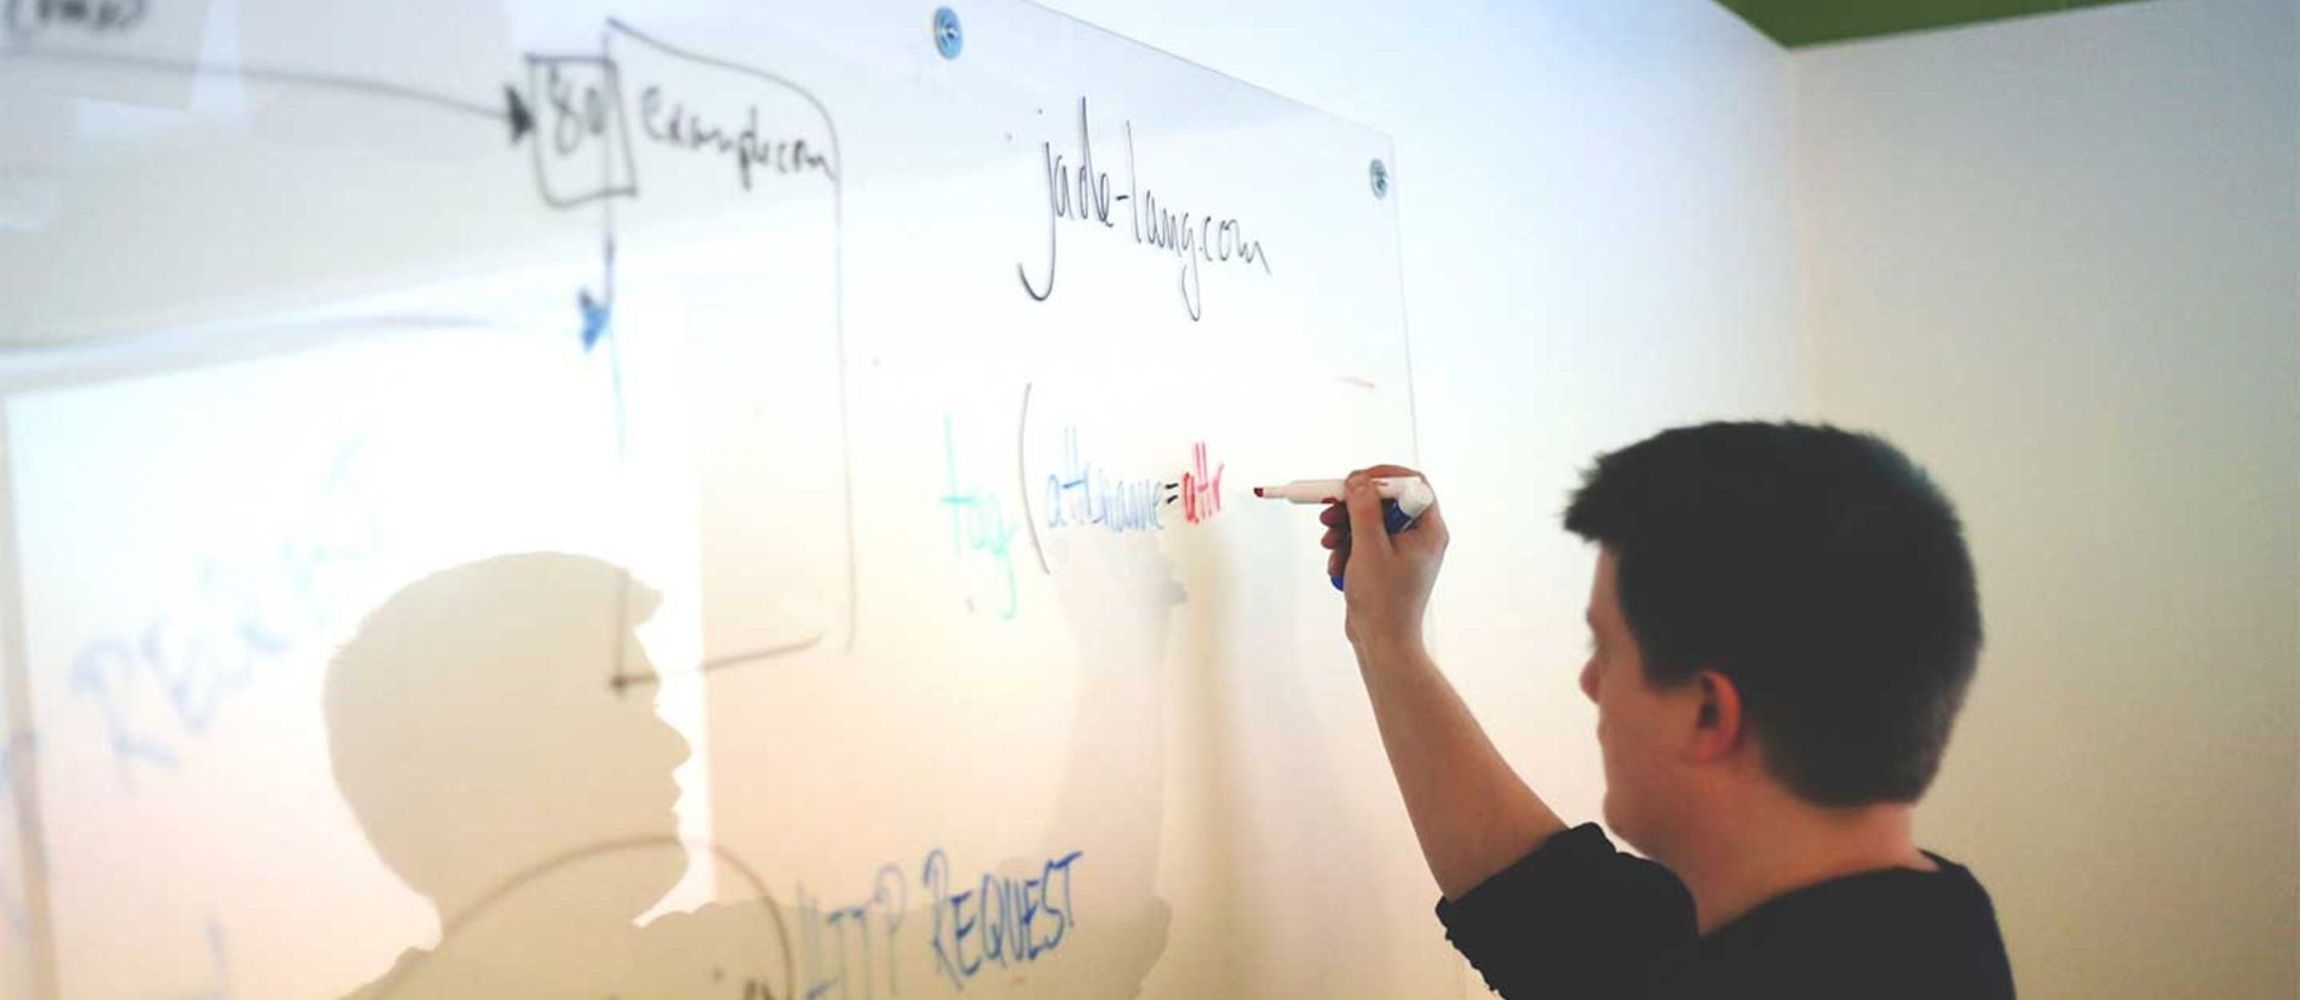 80 example.com
jade-lang.com
tag (attrname=attr
HTTP REQUEST